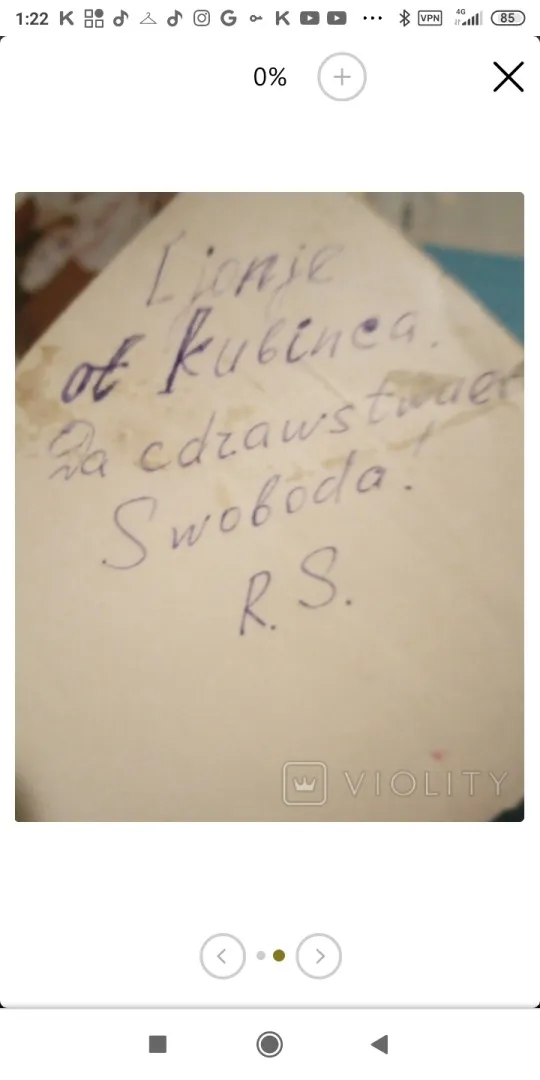 1:22
4G
VPN
85
0%
Ljonje
ot kubinca.
Da cdrawstwuet
Swoboda!
R. S.
VIOLITY